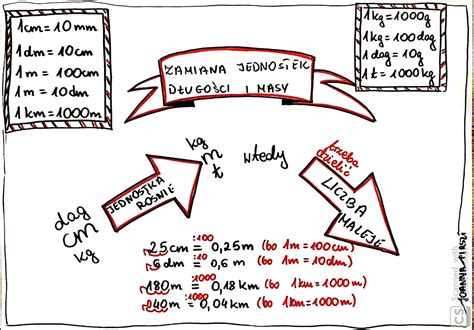 1cm = 10mm
1dm = 10cm
1m = 100cm
1m = 10dm
1km = 1000m
ZAMIANA JEDNOSTEK
DŁUGOŚCI I MASY
1kg = 1000g
1kg = 100dag
1dag = 10g
1t = 1000kg
dag
cm
kg
JEDNOSTKA
ROŚNIE
kg
m
t
wtedy
trzeba
dzielić
LICZBA
MALEJE
:100
25cm = 0,25m (bo 1m = 100cm)
:10
6dm = 0,6m (bo 1m = 10dm)
:1000
180m = 0,18km (bo 1km = 1000m)
:1000
40m = 0,04km (bo 1km = 1000m)
JOANNA
CS